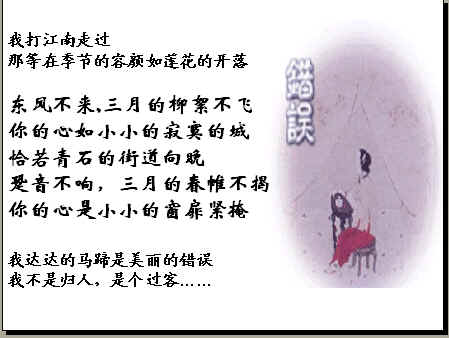 我打江南走过
那等在季节的容颜如莲花的开落
东风不来,三月的柳絮不飞
你的心如小小的寂寞的城
恰若青石的街道向晚
跫音不响，三月的春帷不揭
你的心是小小的窗扉紧掩
我达达的马蹄是美丽的错误
我不是归人，是个过客……
錯誤